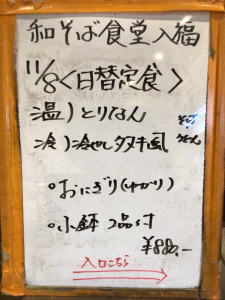 和そば食堂入福
11/8<日替定食>
温)とりなん
冷)冷やしタヌキ風
。おにぎり(ゆかり)
。小鉢 2品付
¥880.-
入口こちら